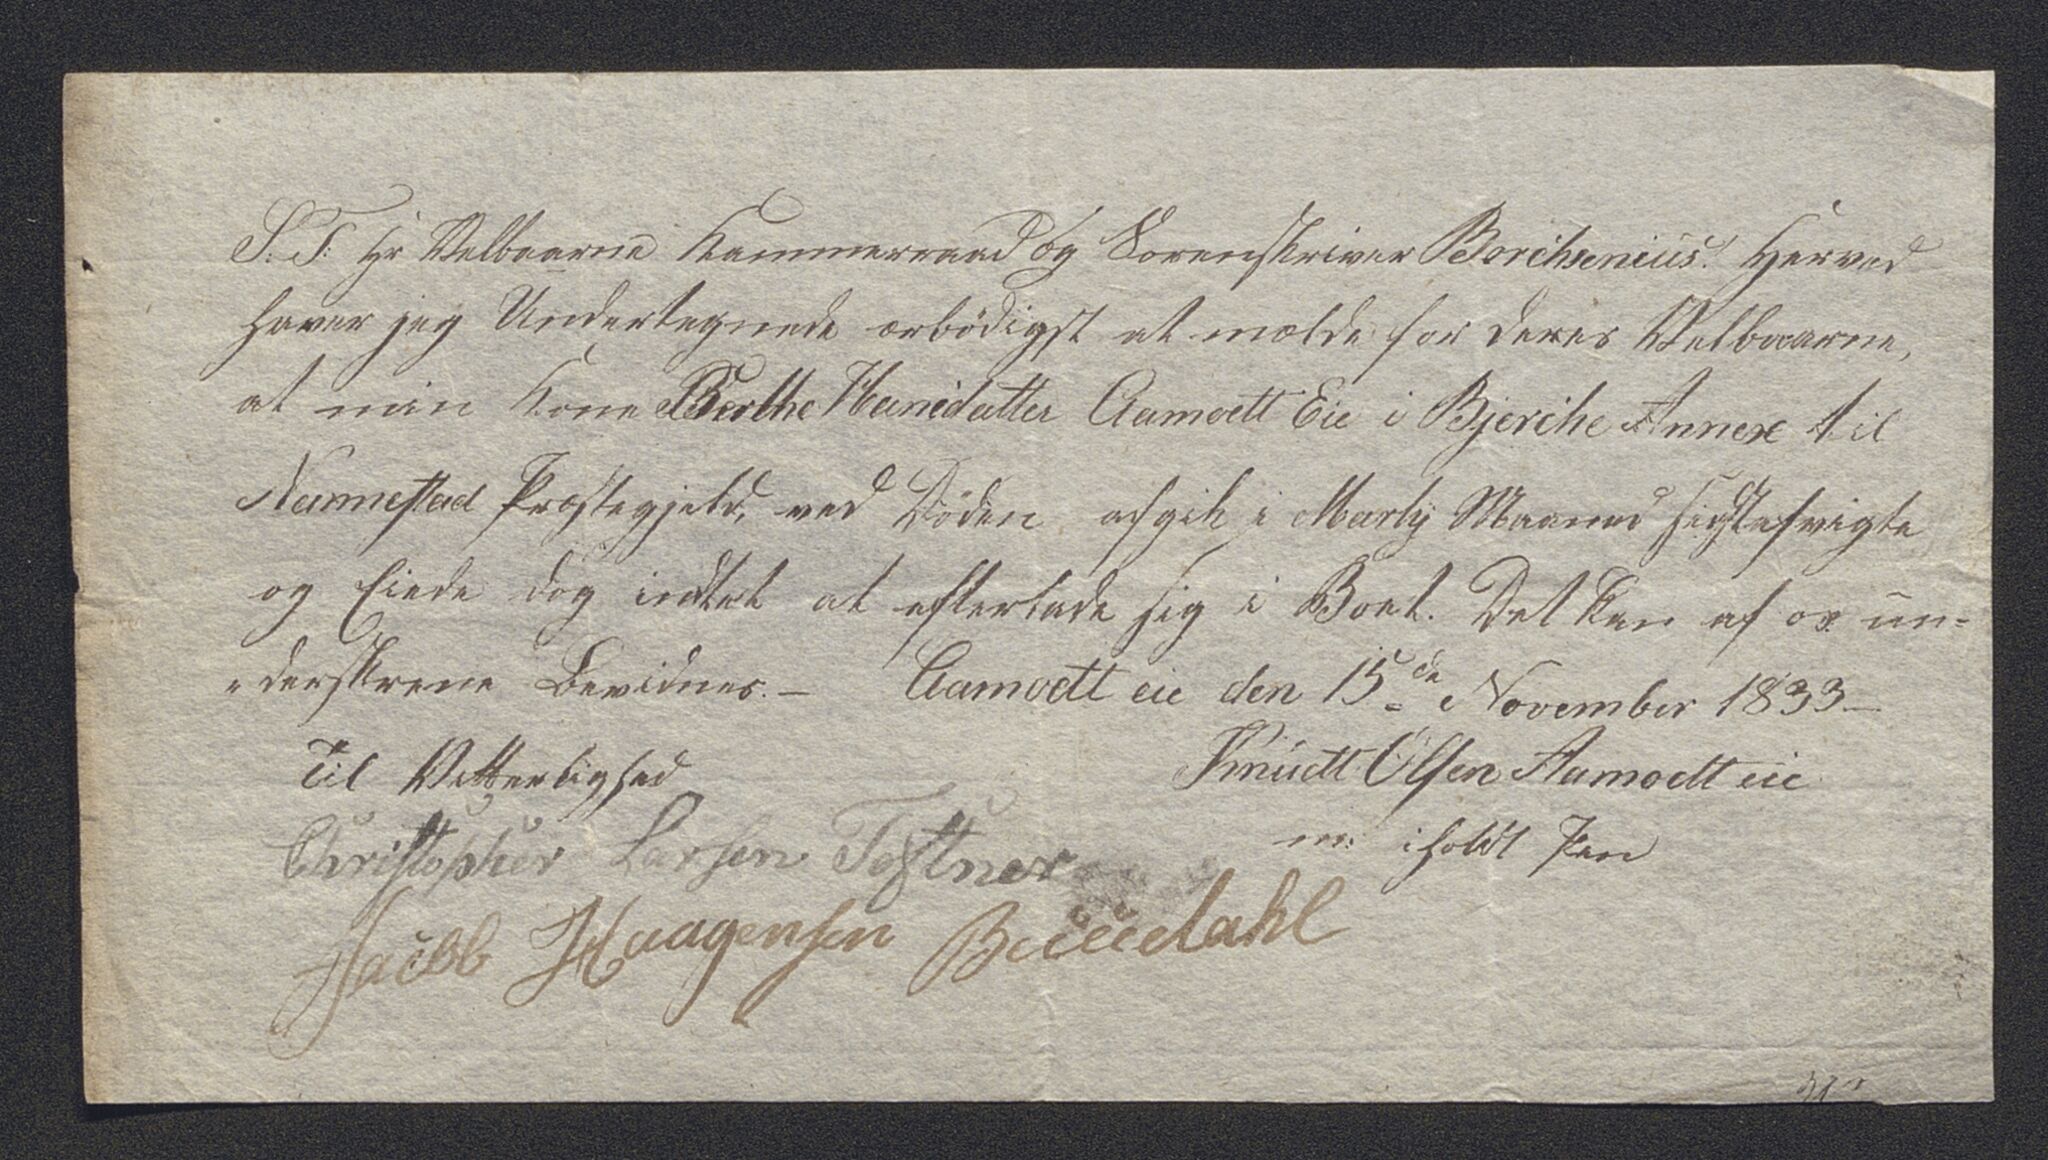 S. T. Hr Velbaarne Kammerraad og Sorenskriver Borchsenius. Herved
haver jeg Undertegnede ærbödigst at mælde for Deres Velbaarne,
at min Kone Berthe Hansdatter Aamoett Eie i Bjerche Annex til
Nannestad Præstegjeld, ved Döden afgik i Martij Maaned sidstafvigte
og Eiede dog indtet at efterlade sig i Boet. Det kan af os un-
"derskrene Bevidnes. — Aamoett eie den 15de November 1833 —
Til Vitterlighed Knudtt Olsen Aamoett eie
Christopher Larsen m: iholdt Pen
Jacob Haagensen